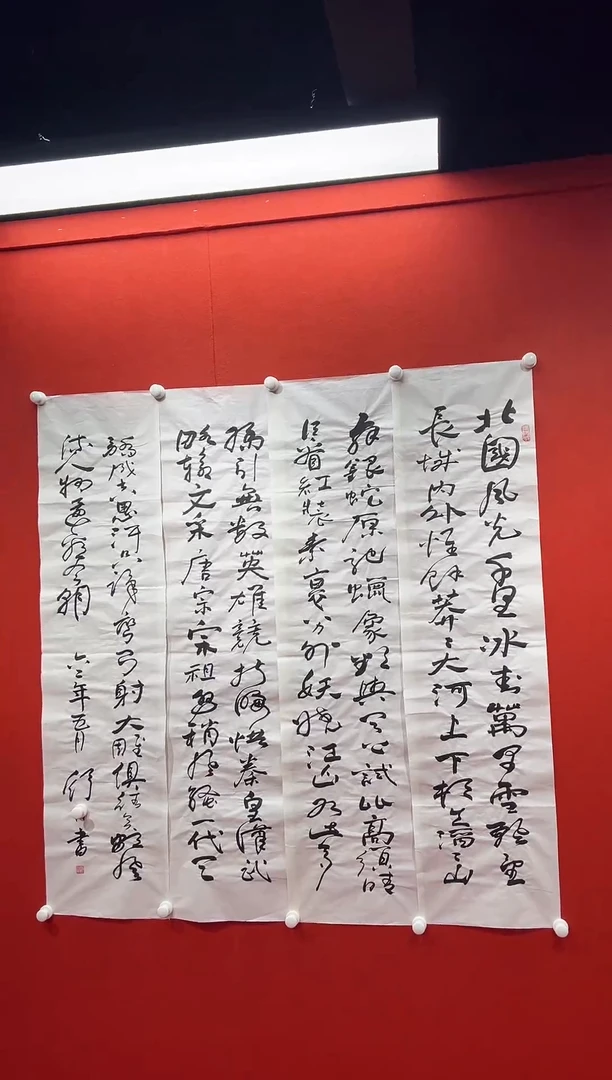 北國風光千里冰封萬里雪飄望
長城内外惟餘莽々大河上下頓失滔々山
舞銀蛇原馳蠟象欲與天公試比高須晴日
看紅裝素裹分外妖嬈江山如此多
嬌引無數英雄競折腰惜秦皇漢武
略輸文采唐宗宋祖稍遜風騷一代天
驕成吉思汗只識彎弓射大雕俱往矣數風
流人物還看今朝 六二年五月 舒 書